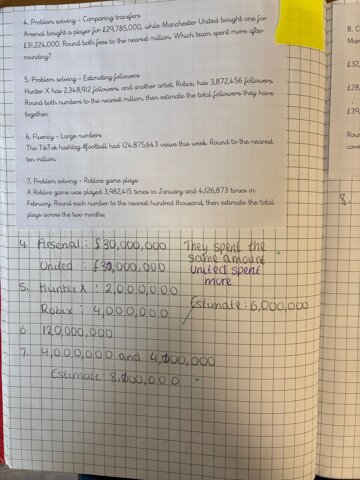 4. Problem solving - Comparing transfers
Arsenal bought a player for £29,785,000, while Manchester United bought one for
£31,224,000. Round both fees to the nearest million. Which team spent more after
rounding?
5. Problem solving - Estimating followers
Hunter X has 2,348,912 followers, and another artist, Robax, has 3,872,456 followers.
Round both numbers to the nearest million, then estimate the total followers they have
together.
6. Fluency - Large numbers
The TikTok hashtag #football had 124,875,643 views this week. Round to the nearest
ten million.
7. Problem solving - Roblox game plays
A Roblox game was played 3,982,415 times in January and 4,126,873 times in
February. Round each number to the nearest hundred thousand, then estimate the total
plays across the two months.
4. Arsenal : £30,000,000 They spent the
same amount
United : £31,000,000 united spent
more
5. Hunter X : 2,000,000
Robax : 4,000,000 Estimate: 6,000,000
6 120,000,000
7. 4,000,000 and 4,100,000
Estimate: 8,100,000
8. C
Man
£32,
£28,
£39
Rour
cove
8.